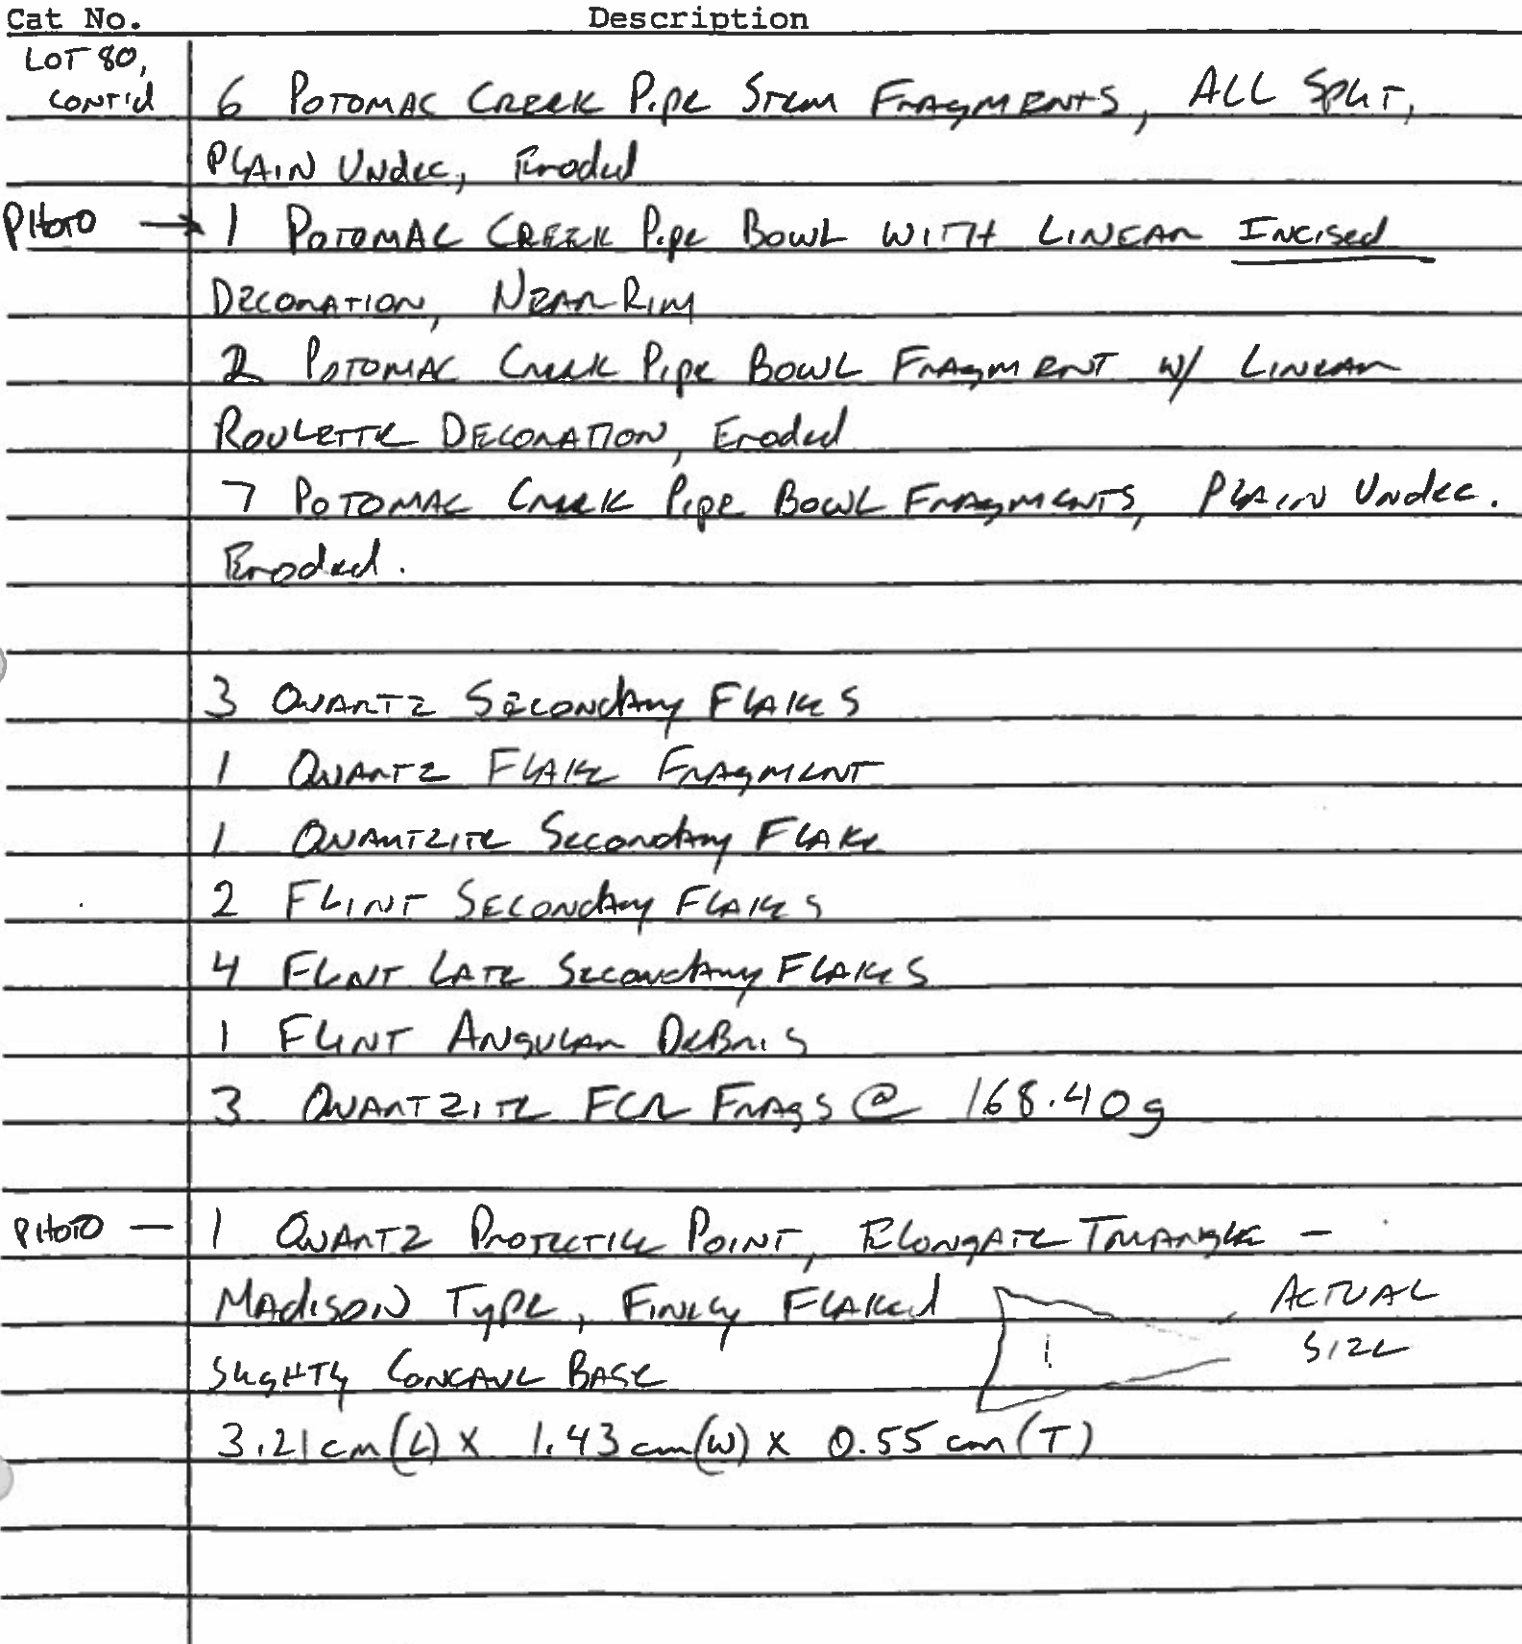 Cat No. Description
LOT 80,
CONT'd 6 POTOMAC CREEK PIPE STEM FRAGMENTS, ALL SPLIT,
PLAIN UNdEC, Eroded
PHOTO → 1 POTOMAC CREEK PIPE BOWL WITH LINEAR INCISEd
DECORATION, NEAR RIM
2 POTOMAC CREEK PIPE BOWL FRAGMENT W/ LINEAR
ROULETTE DECORATION, Eroded
7 POTOMAC CREEK PIPE BOWL FRAGMENTS, PLAIN UNdEC.
Eroded.
3 QUARTZ SECONdARY FLAKES
1 QUARTZ FLAKE FRAGMENT
1 QUARTZITE SECONdARY FLAKE
2 FLINT SECONdARY FLAKES
4 FLINT LATE SECONdARY FLAKES
1 FLINT ANGULAR DEBRIS
3 QUARTZITE FCR FRAGS @ 168.40g
PHOTO — 1 QUARTZ PROJECTILE POINT, ELONGATE TRIANGLE –
MAdISON TYPE, FINELY FLAKEd ACTUAL
SIZE
SLIGHTLY CONCAVE BASE
3.21 cm (L) x 1.43 cm (W) x 0.55 cm (T)